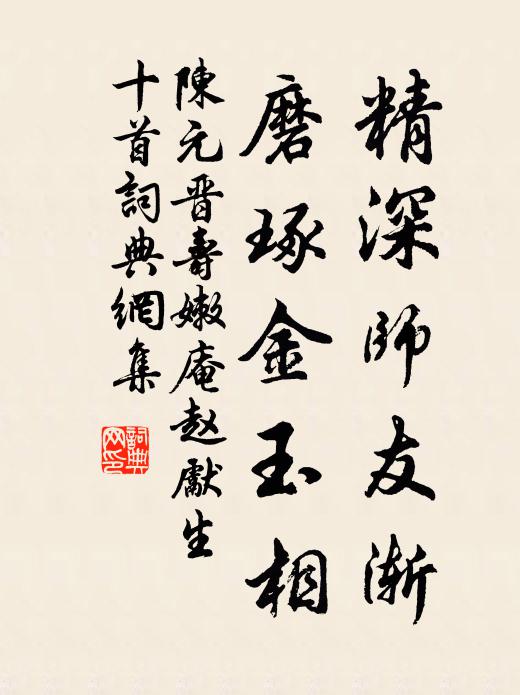 精深師友漸
磨琢金玉相
陳元晋壽嫩庵赵獻生
十首詞典網集
詞典網印